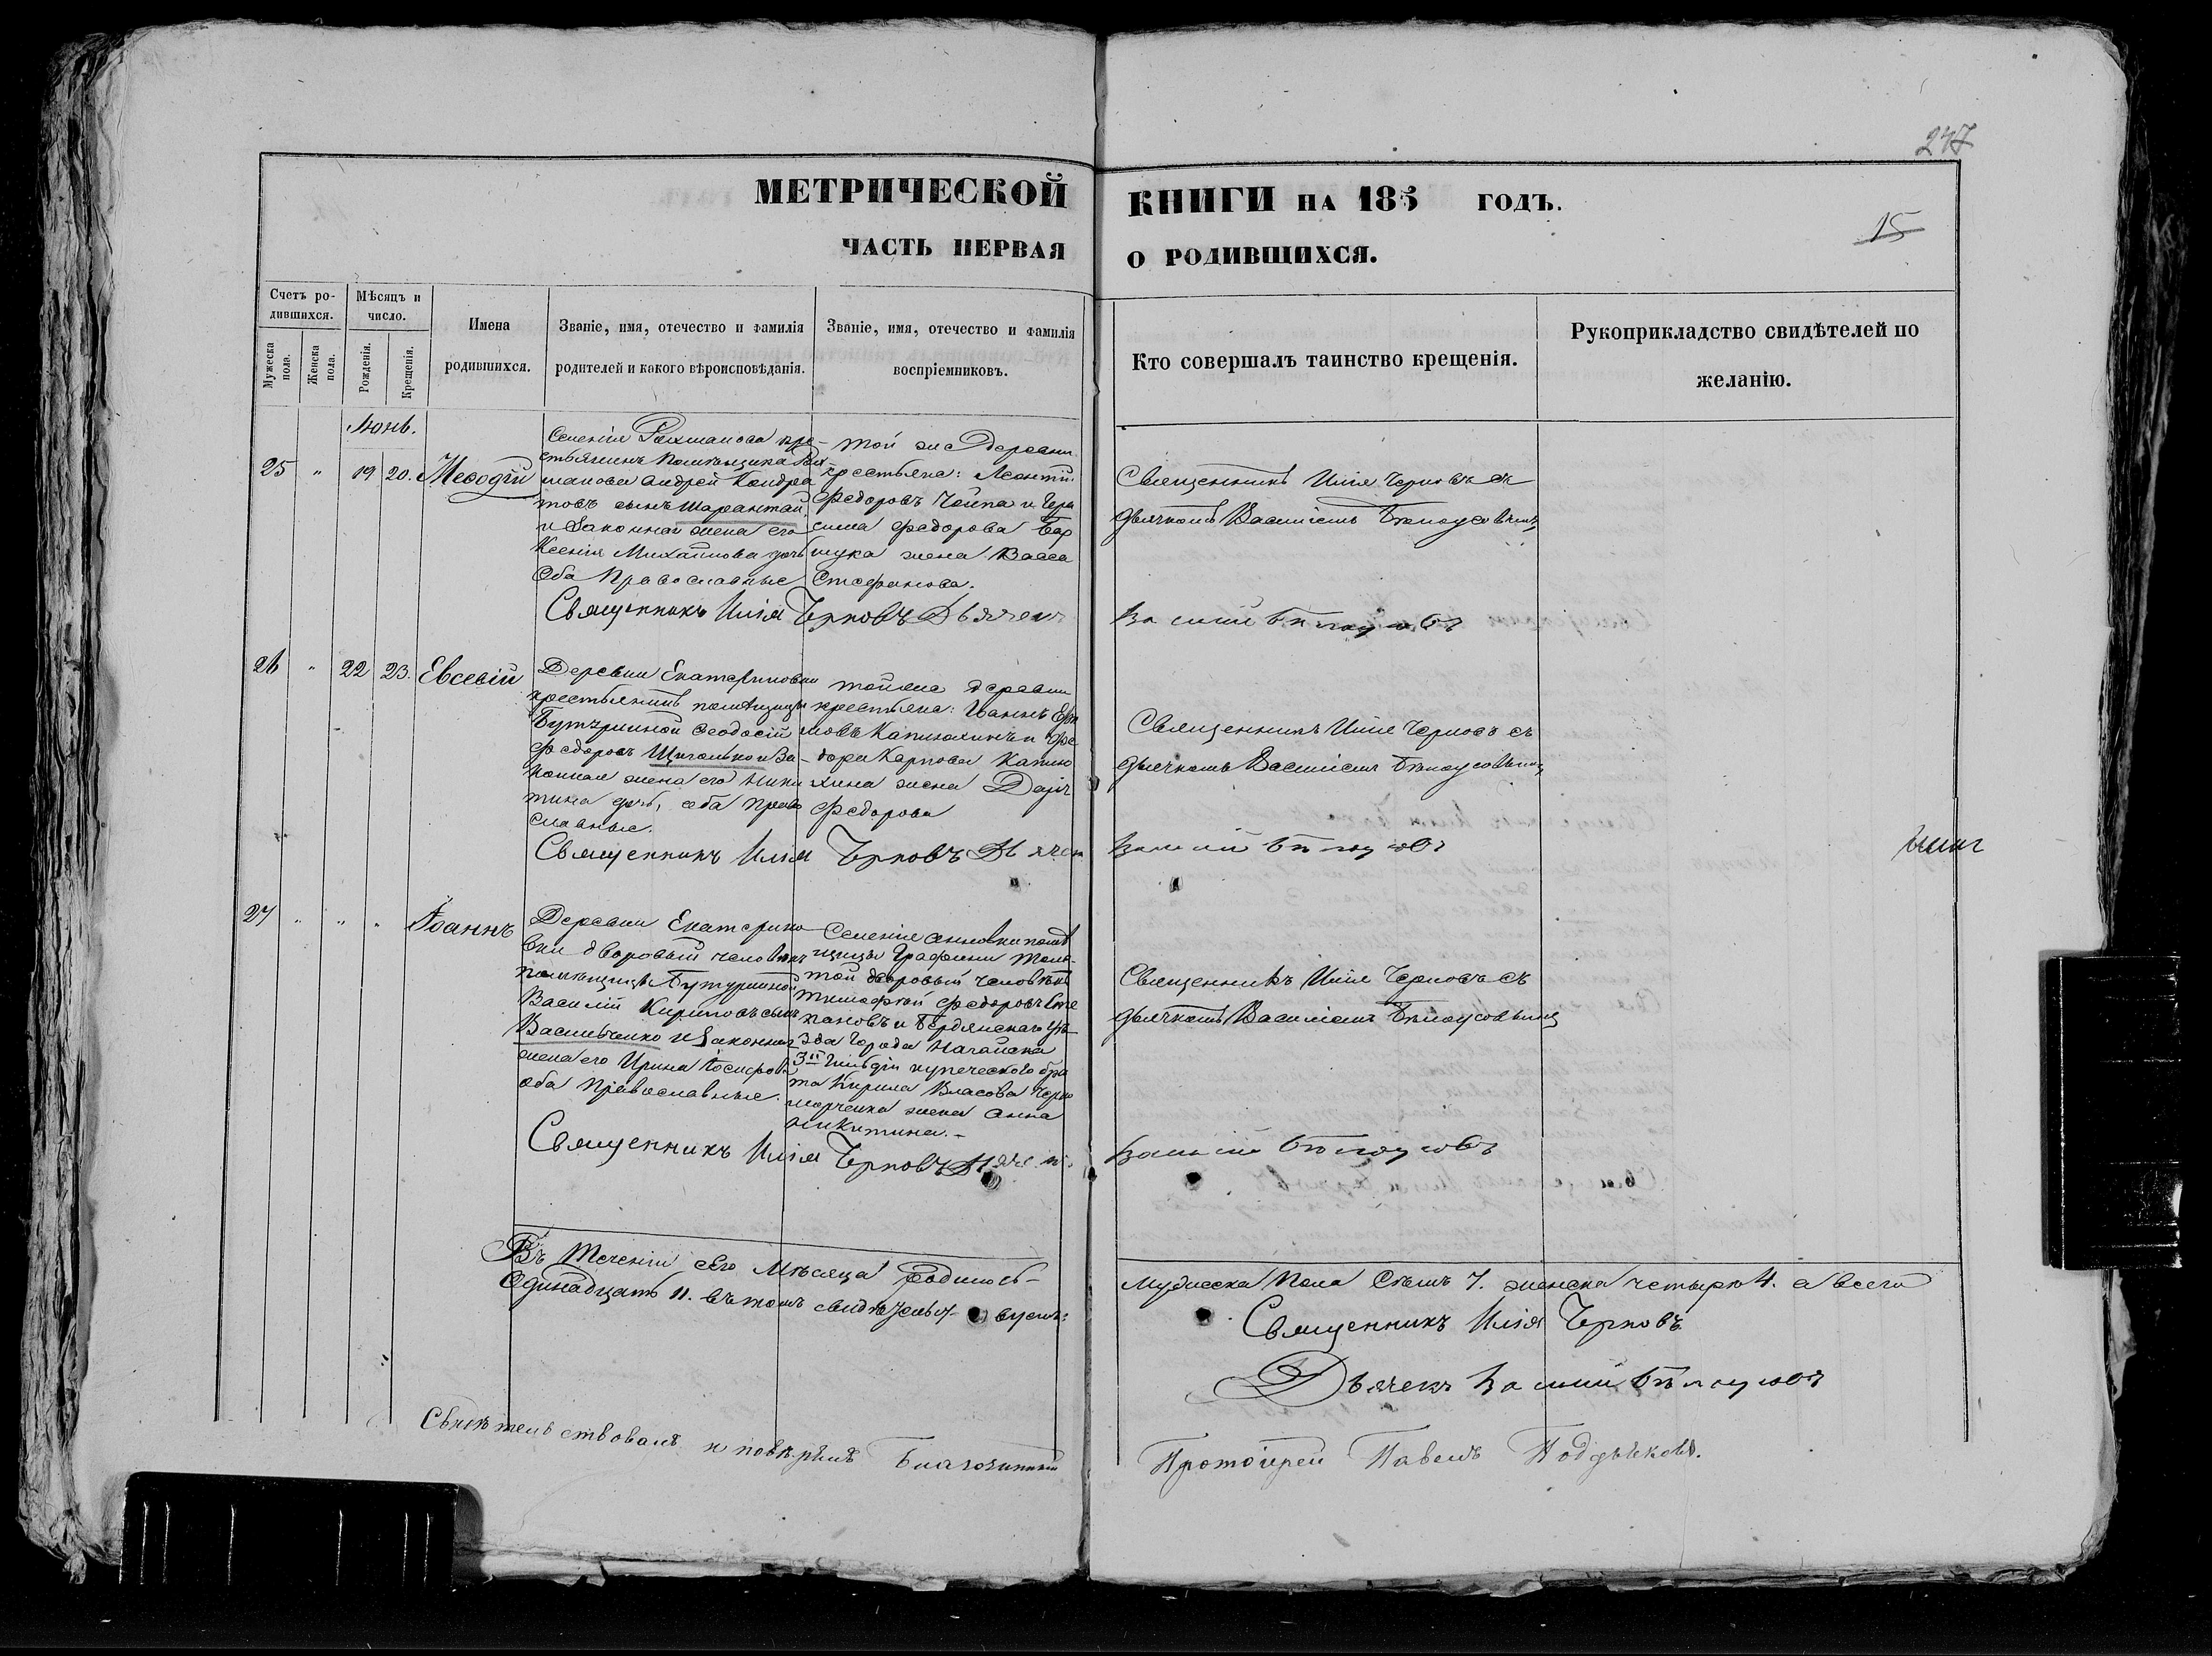 247
МЕТРИЧЕСКОЙ КНИГИ НА 1855 ГОДЪ.
15
ЧАСТЬ ПЕРВАЯ О РОДИВШИХСЯ.
Счетъ родившихся.
Мужеска пола.
Женска пола.
Мѣсяцъ и число.
Рожденія.
Крещенія.
Имена родившихся.
Званіе, имя, отечество и фамилія родителей и какого вѣроисповѣданія.
Званіе, имя, отечество и фамилія воспріемниковъ.
Кто совершалъ таинство крещенія.
Рукоприкладство свидѣтелей по желанію.
Іюнь.
25 " 19 20. Меѳодій
Селенія Рахманова кре-
стьянинъ помѣщика Рах-
манова Андрей Кондра
товъ сынъ Шарантай
и Законная жена его
Ксенія Михайлова дочь
Оба Православные
Той же Деревни
крестьяне: Леонтій
Федоровъ Чайка и Гера
сима Федорова Бар
щука жена Васса
Стефанова.
Священникъ Илія Черновъ съ
дьячкомъ Василіемъ Бѣлоусовымъ
Священникъ Илія Черновъ Дьячекъ Василій Бѣлоусовъ
26 " 22 23. Евсевій
Деревни Екатериновки
крестьянинъ помѣщицы
Бутурлиной Ѳеодосій
Федоровъ Щиголь и За-
конная жена его Ники
тина дочь, оба Право
славные.
тойже деревни
крестьяне: Іоаннъ
дора Карпова
жена Дарія
Федорова
Священникъ Илія Черновъ съ
дьячкомъ Василіемъ Бѣлоусовымъ
Священникъ Илія Черновъ Дьячекъ Василій Бѣлоусовъ
27 " " " Іоаннъ
Деревни Екатерино
вки дворовый человѣкъ
помѣщицы Бутурлиной
Василій Кириловъ сынъ
Васильченко и Законная
жена его Ирина Іосифова
оба Православные.
Селенія Анновки помѣ
щицы Графини Толс-
той дворовый человѣкъ
Тимофей Федоровъ Сте
пановъ и Бердянскаго уѣ-
зда Города Нагайска
3й Гильдіи купеческаго бра
та Кирила Власова Черно
морченка жена Анна
Никитина.-
Священникъ Илія Черновъ съ
дьячкомъ Василіемъ Бѣлоусовымъ
Священникъ Илія Черновъ Дьячекъ Василій Бѣлоусовъ
Въ Теченіи сего Мѣсяца родилось- мужеска Пола Семь 7. женска четыре 4. а всего
Одинадцать 11. въ томъ свидѣтельствуемъ: Священникъ Илія Черновъ
Дьячекъ Василій Бѣлоусовъ
Свидѣтельствовалъ и повѣрялъ Благочинный Протоіерей Павелъ Поддьяковъ.